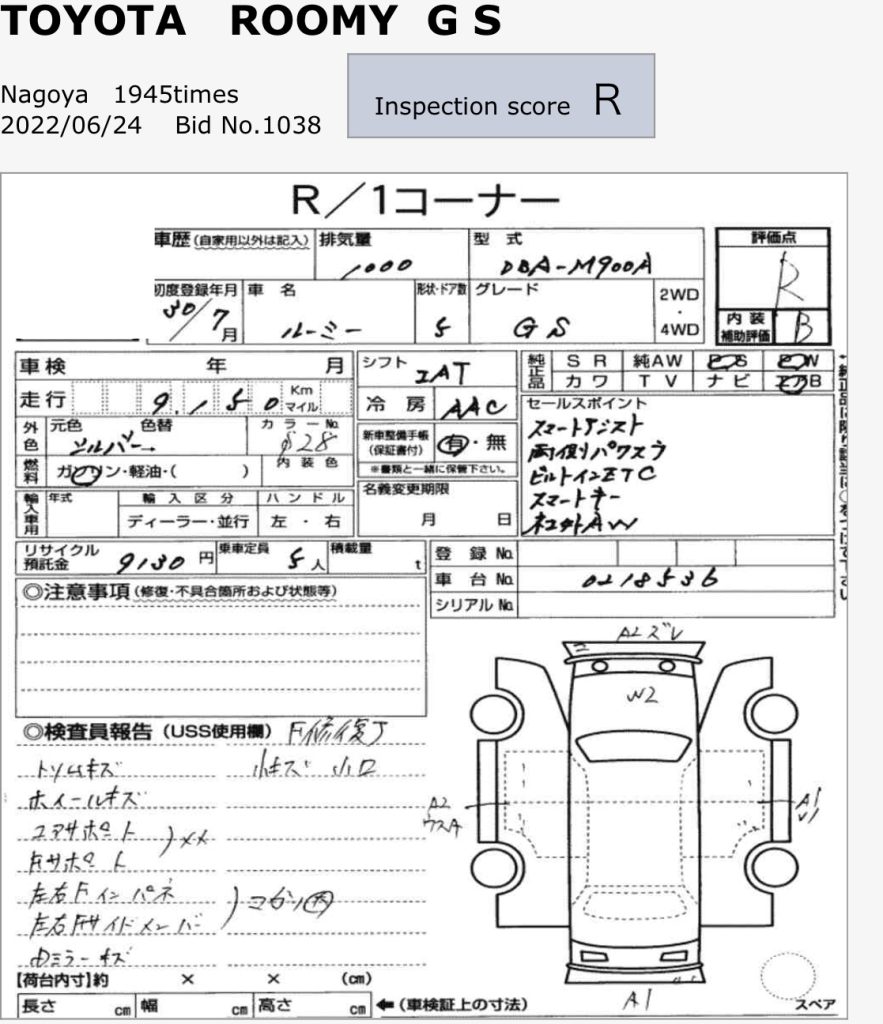 TOYOTA ROOMY G S
Nagoya 1945times
2022/06/24 Bid No.1038
Inspection score R
R/1コーナー
車歴 (自家用以外は記入) 排気量 型式 評価点
1000 DBA-M900A R
初度登録年月 車名 形状・ドア数 グレード 2WD・4WD
30/7月 ルーミー 5 GS
内装補助評価 B
車検 年 月 シフト IAT 純正品 SR 純AW
カワ TV ナビ
走行 9,150 Km マイル 冷房 AAC
セールスポイント
外色 元色 色替 カラーNo.
シルバー S28
新車整備手帳(保証書付) 有・無
※書類と一緒に保管下さい。
スマートアシスト
両側パワスラ
ビルトインETC
スマートキー
社外AW
燃料 ガソリン・軽油・( ) 内装色
輸入車用 年式 輸入区分 ハンドル
ディーラー・並行 左・右
名義変更期限
月 日
リサイクル預託金 9130円 乗車定員 5人 積載量 t
登録No.
車台No. 0218536
シリアルNo.
◎注意事項 (修復・不具合箇所および状態等)
A2ズレ
W2
◎検査員報告 (USS使用欄) F修復了
トリムキズ 小キズ 小凹
ホイールキズ
コアサポート
Fサポート
左右Fインパネ
左右Fサイドメンバー
ミラーキズ
A2
A1
A1
【荷台内寸】約 × × (cm)
長さ cm 幅 cm 高さ cm ←(車検証上の寸法)
スペア